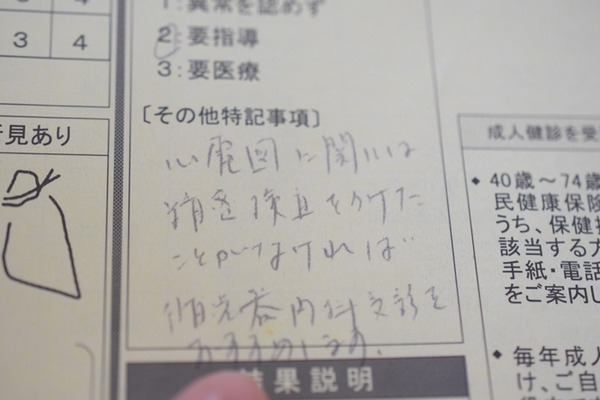 1:異常を認めず
3 4
2:要指導
3:要医療
〔その他特記事項〕
心電図に関しては
精密検査をうけた
ことがなければ
循環器内科受診を
おすすめします。
結果説明
見あり
成人健診を受
◆ 40歳～74歳
民健康保険
うち、保健
該当する方
手紙・電話
をご案内し
◆ 毎年成人
け、ご自